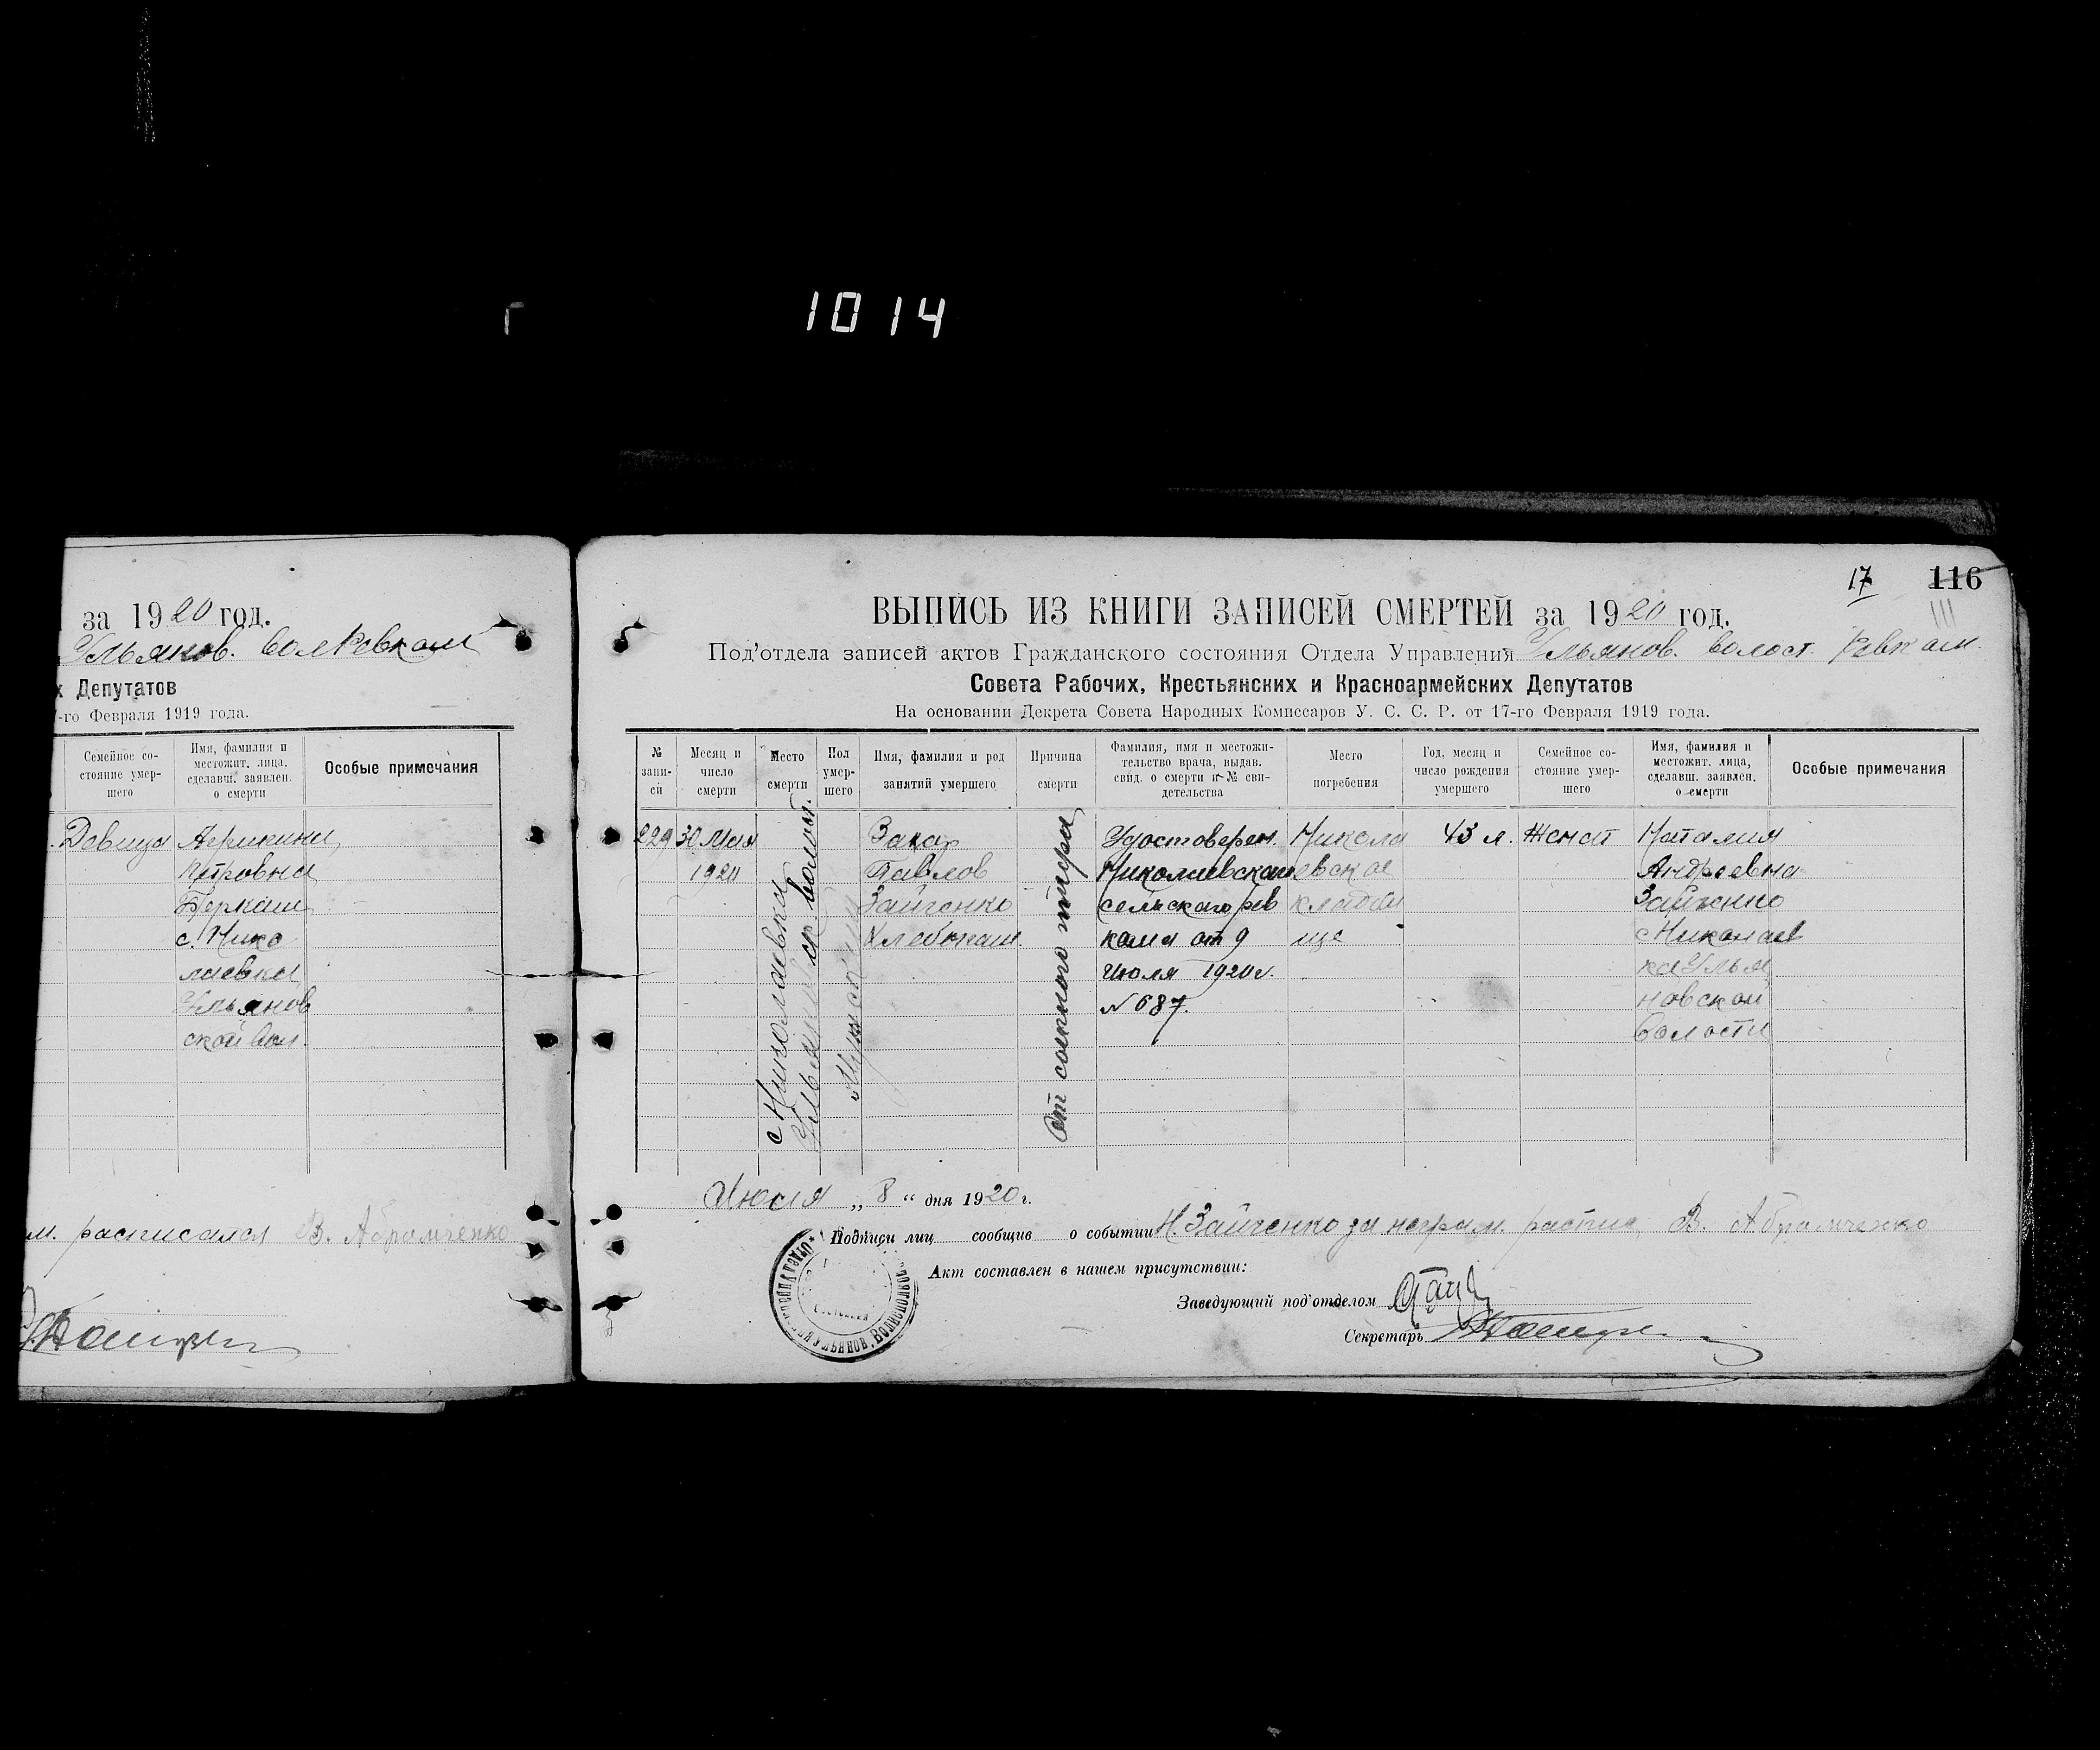 1014
за 1920 год.
Ульянов. волРевком
х Депутатов
-го Февраля 1919 года.
Семейное со-
стояние умер-
шего
Имя, фамилия и
местожит. лица,
сделавш. заявлен.
о смерти
Особые примечания
Девица
Петровна
с. Нико
лаевки
Ульянов
ской вол.
м. расписался В. Абрамченко
17 116
111
ВЫПИСЬ ИЗ КНИГИ ЗАПИСЕЙ СМЕРТЕЙ за 1920 год.
Под'отдела записей актов Гражданского состояния Отдела Управления Ульянов. волост. Ревком.
Совета Рабочих, Крестьянских и Красноармейских Депутатов
На основании Декрета Совета Народных Комиссаров У. С. С. Р. от 17-го Февраля 1919 года.
№
запи-
си
Месяц и
число
смерти
Место
смерти
Пол
умер-
шего
Имя, фамилия и род
занятий умершего
Причина
смерти
Фамилия, имя и местожи-
тельство врача, выдав.
свид. о смерти и № сви-
детельства
Место
погребения
Год, месяц и
число рождения
умершего
Семейное со-
стояние умер-
шего
Имя, фамилия и
местожит. лица,
сделавш. заявлен.
о смерти
Особые примечания
229
30 Мая
1920
с Николаевка
Ульяновск. волост.
Мужской
Захар
Павлов
Зайченко
Хлебопаш
От сыпного тифа
Удостоверен.
Николаевскаго
сельскаго рев
кома от 9
Июля 1920 г.
№ 687.
Никола
евское
кладби
ще
43 л.
Женат
Наталия
Андреевна
Зайченко
с Николаев
ка Улья
новской
волости
Июля „ 8 “ дня 1920 г.
Подписи лиц сообщив о событии Н. Зайченко за неграм. распис. В. Абрамченко
Акт составлен в нашем присутствии:
Заведующий под'отделом
Секретарь